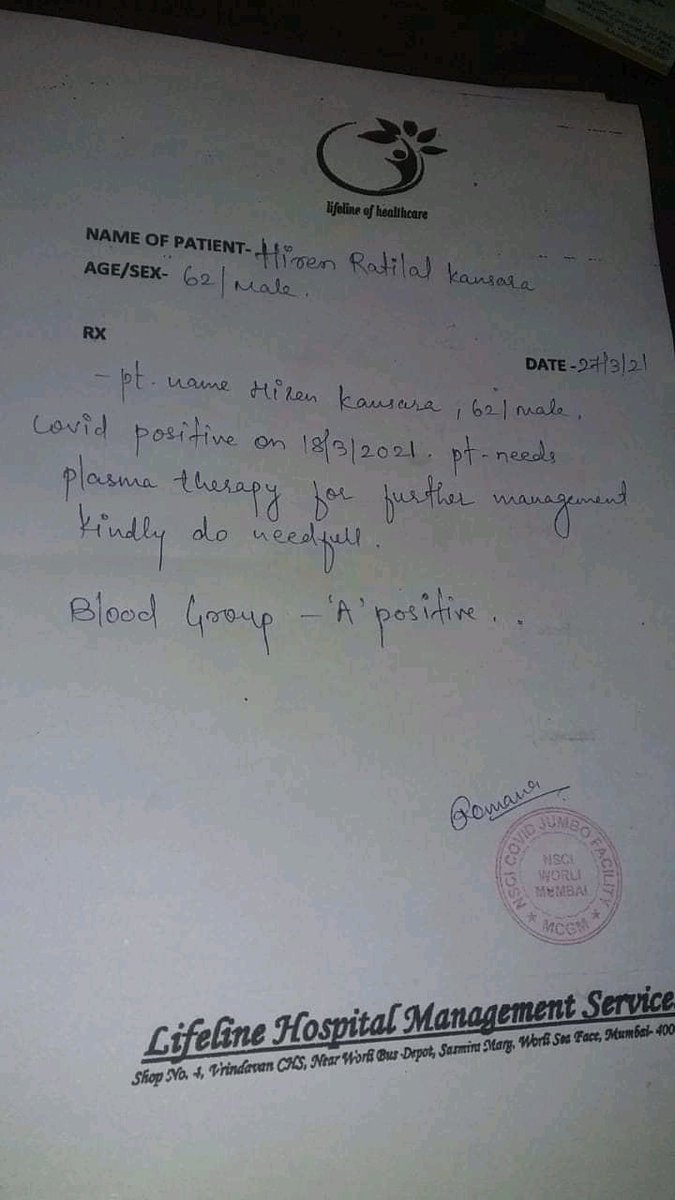 lifeline of healthcare
NAME OF PATIENT- Hiren Ratilal Kansara
AGE/SEX- 62/Male.
RX
DATE -27/3/21
- pt. name Hiren Kansara, 62/male.
Covid positive on 18/3/2021. pt-needs
plasma therapy for further management
kindly do needfull.
Blood Group - 'A' positive..
NSCI COVID JUMBO FACILITY
NSCI
WORLI
MUMBAI
MCGM
Lifeline Hospital Management Service
Shop No. 4, Vrindavan CHS, Near Worli Bus-Depot, Sasmira Marg, Worli Sea Face, Mumbai- 400